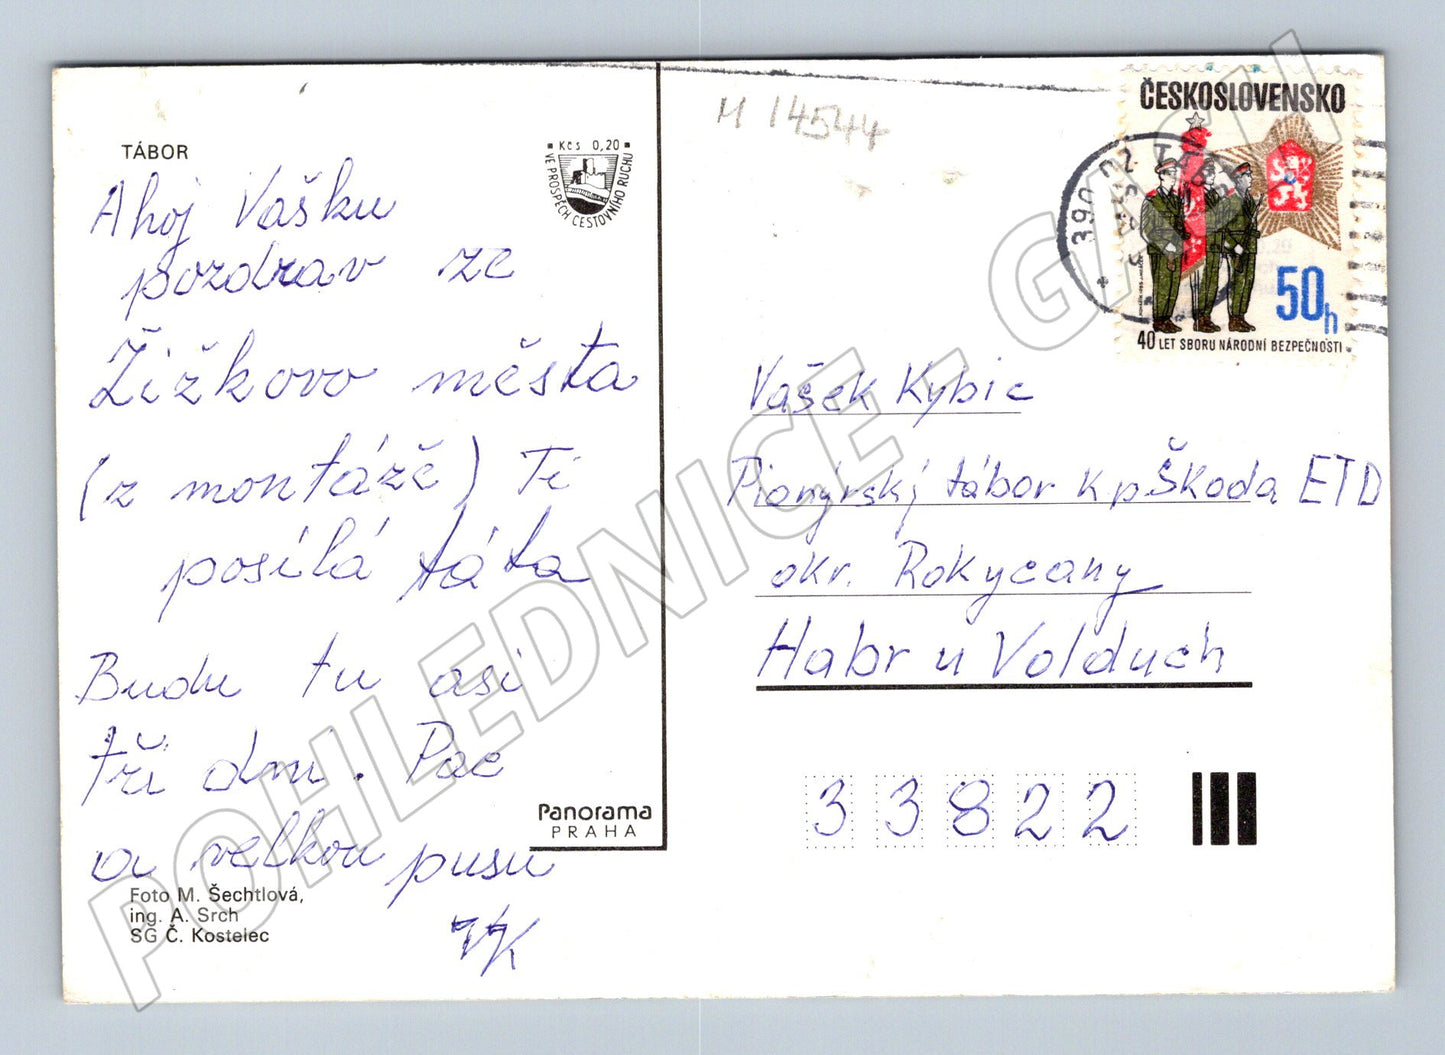 TÁBOR
Kčs 0,20
VE PROSPĚCH CESTOVNÍHO RUCHU
Ahoj Vašku
pozdrav ze
Žižkovo města
(z montáže) Ti
posílá táta
Budu tu asi
tři dni. Pac
a velkou pusu
VK
Panorama
PRAHA
Foto M. Šechtlová,
ing. A. Srch
SG Č. Kostelec
M 14544
ČESKOSLOVENSKO
50h
40 LET SBORU NÁRODNÍ BEZPEČNOSTI
390 02 TÁBOR
Vašek Kybic
Pionýrský tábor k p Škoda ETD
okr. Rokycany
Habr u Volduch
33822
POHLEDNICE - GASH